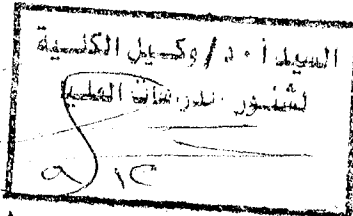 السيد أ . د / وكيل الكلية
لشئون الدراسات العليا